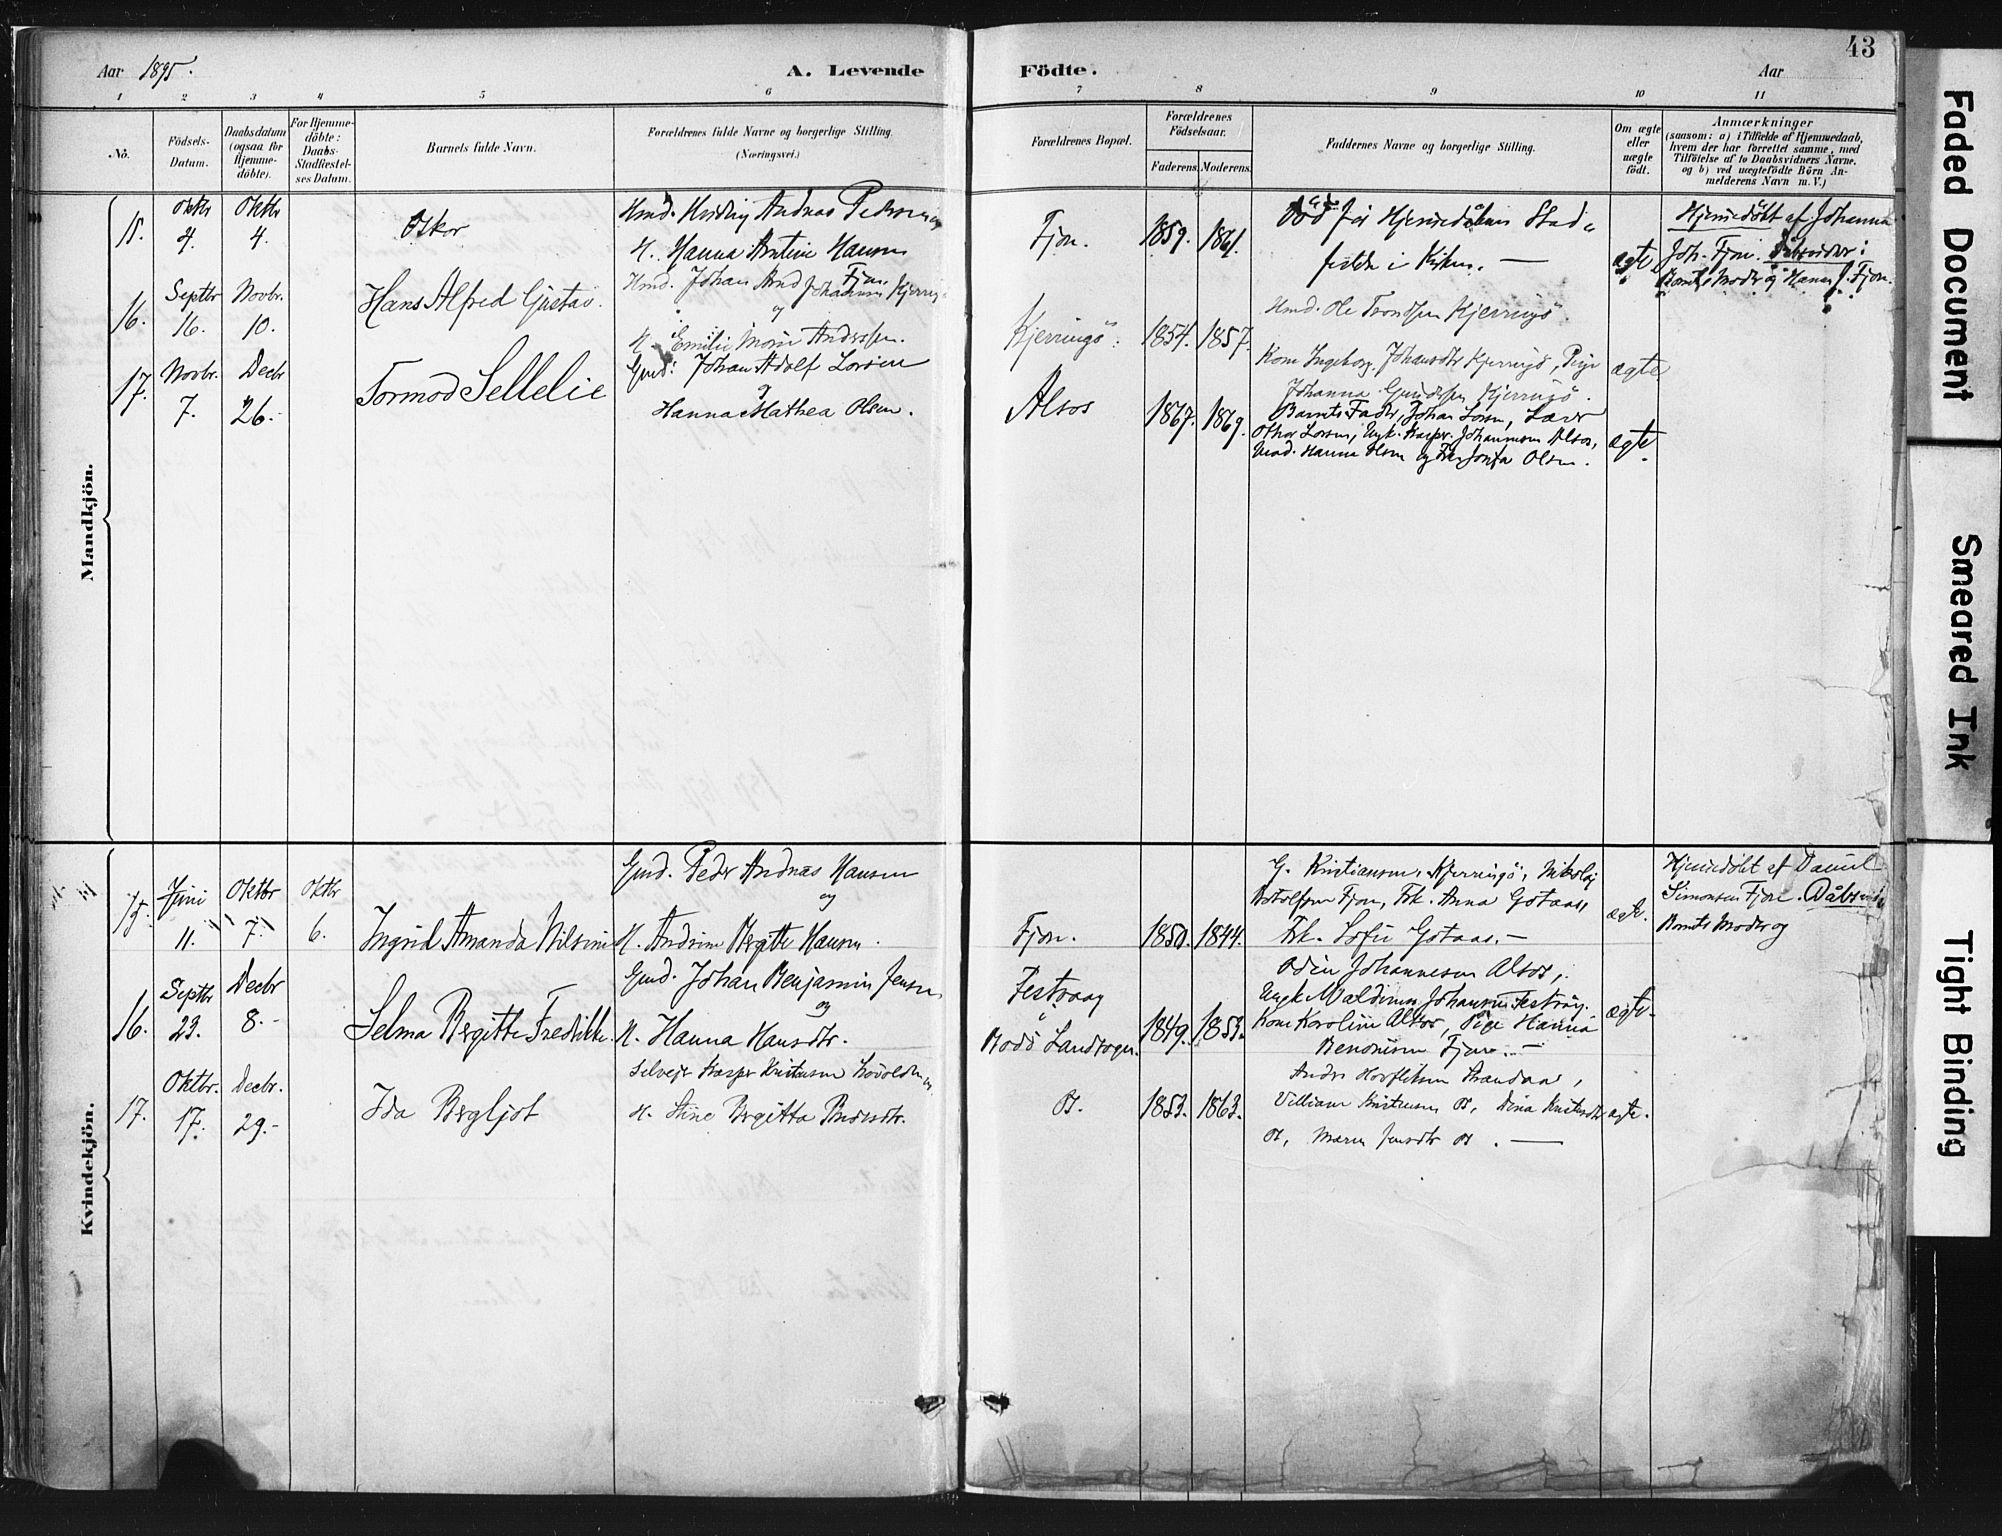 Aar 1895.
A. Levende
Födte.
Aar
43
1 2 3 4 5 6 7 8 9 10 11
No.
Födsels-
Datum.
Daabsdatum
(ogsaa for
Hjemme-
döbte).
For Hjemme-
döbte:
Daabs-
Stadfæstel-
ses Datum.
Barnets fulde Navn.
Forældrenes fulde Navne og borgerlige Stilling
(Næringsvei.)
Forældrenes Bopæl.
Forældrenes
Födselsaar.
Faderens. Moderens.
Faddernes Navne og borgerlige Stilling.
Om ægte
eller
uægte
födt.
Anmærkninger
(saasom: a) i Tilfælde af Hjemmedaab,
hvem der har forrettet samme, med
Tilföielse af to Daabsvidners Navne.
og b) ved uægtefödte Börn An-
melderens Navn m. V.)
Mandkjön.
15.
Oktbr
4.
Oktbr
4.
Oskar
Andreas Pedersen
H. Hanna Hansen
Fjære.
1859. 1861.
Död för Hjemmedåbens Stad-
fæstelse i Kirken. —
ægte
Hjemmedöbt af Johanna
Joh. Fjære. Dåbsvidner:
Barnets Moder og Hanna J. Fjære.
16.
Septbr
16.
Novbr.
10.
Hans Alfred Gustav.
Johan Arnd Johannesen Kjerringö
og
H. Emilie Marie Andersen.
Kjerringö.
1854. 1857.
Ole Trondsen Kjerringö.
Kone Ingeborg Johansdtr Kjerringö, Pige
Johanna Kjerringö.
ægte
17.
Novbr.
7.
Decbr
26.-
Tormod Sellelie
Gmd. Johan Adolf Lorsen
og
Hanna Mathea Olsen.
Alsos
1867. 1869.
Barnets Fader, Johan Lorsen,
Oskar Lorsen, Ungk. Kasper Johannesen Alsos,
Mad. Hanna Olsen og Frk. Olsen.
ægte.
Kvindekjön.
15.
Juni
11.
Oktbr
7.
Oktbr
6.
Ingrid Amanda Nilsine
Gmd. Peder Andreas Hansen
og
H. Andrine Bergitte Hansen.
Fjære.
1850. 1844.
G. Kristiansen, Kjerringö, Nikolaj
Fjære, Frk. Anna Gotaas,
Frk. Sofie Gotaas. —
ægte.
Hjemmedöbt af Daniel
Simonsen Fjære. Dåbsvidn.
Barnets Moder og
16.
Septbr
23.
Decbr
8.-
Selma Bergitte Fredrikke.
Gmd. Johan Benjamin Jensen
og
H. Hanna Hansdtr.
Festvaag
Bodö Landsogn.
1849. 1853.
Odin Johannesen Alsos,
Ungk. Valdimar Johansen Festvåg.
Kone Karoline Alsos, Pige Hanna
Benonisen Fjære. —
ægte.
17.
Oktbr.
17.
Decbr.
29.-
Ida Bergljot
Selvejer Kasper Kristensen
H. Stine Bergitta Pedersdtr.
Os.
1853. 1863.
Strandaa,
Villiam Kristensen Os, Dina Kristensdtr
Os, Maren Jensdtr Os. —
ægte.
Faded Document
Smeared Ink
Tight Binding